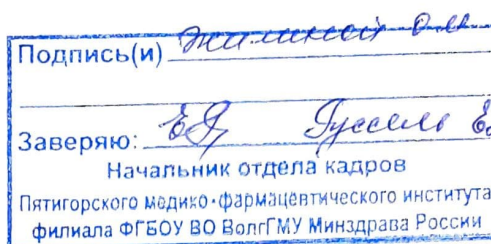 Подпись(и) Жилиной О.М
Заверяю:
Начальник отдела кадров
Пятигорского медико-фармацевтического института
филиала ФГБОУ ВО ВолгГМУ Минздрава России